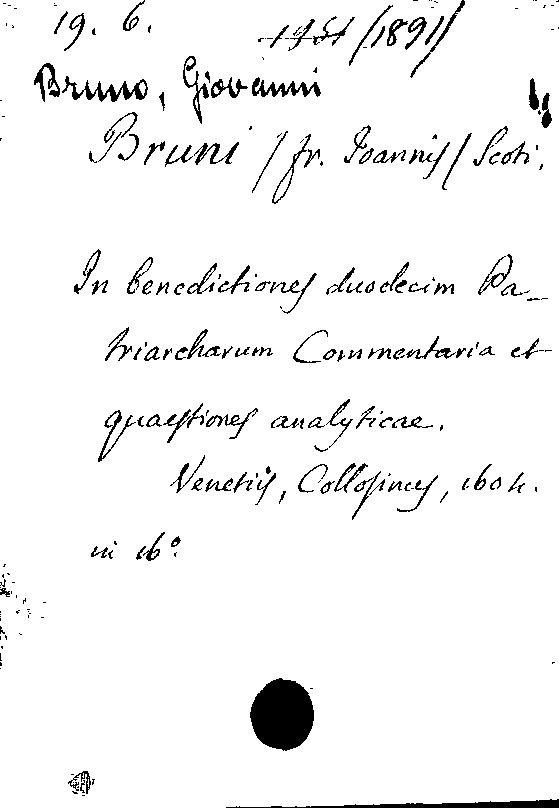 19. 6. /1891/
Bruno, Giovanni
Bruni / fr. Ioannis / Scoti,
In benedictiones duodecim Pa-
triarcharum Commentaria et
quaestiones analyticae.
Venetiis, Collosinus, 1604.
in 16°.